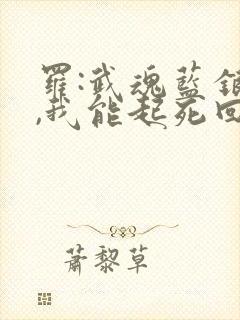 羅:武魂藍銀
,我能起死回
蕭黎草